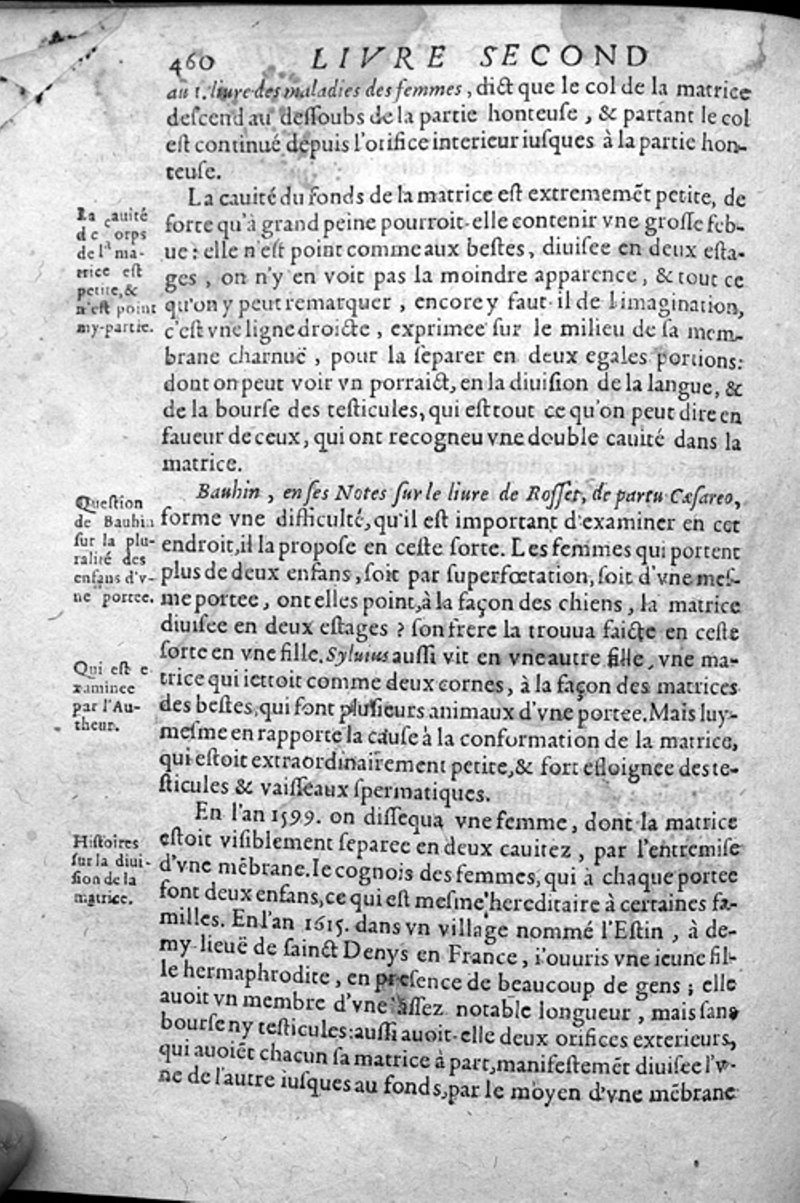 460 LIVRE SECOND
au 1. liure des maladies des femmes, dict que le col de la matrice
descend au dessoubs de la partie honteuse, & partant le col
est continué depuis l'orifice interieur iusques à la partie hon-
teuse.
La cauité du fonds de la matrice est extrememẽt petite, de
sorte qu'à grand peine pourroit-elle contenir vne grosse feb-
ue : elle n'est point comme aux bestes, diuisee en deux esta-
ges, on n'y en voit pas la moindre apparence, & tout ce
qu'on y peut remarquer, encore y faut-il de l'imagination,
c'est vne ligne droicte, exprimee sur le milieu de sa mem-
brane charnuë, pour la separer en deux egales portions:
dont on peut voir vn porraict, en la diuision de la langue, &
de la bourse des testicules, qui est tout ce qu'on peut dire en
faueur de ceux, qui ont recogneu vne double cauité dans la
matrice.
La cauité
de corps
de la ma-
trice est
petite, &
n'est point
my-partie.
Bauhin, en ses Notes sur le liure de Rosset, de partu Cæsareo,
forme vne difficulté, qu'il est important d'examiner en cet
endroit, il la propose en ceste sorte. Les femmes qui portent
plus de deux enfans, soit par superfœtation, soit d'vne mes-
me portee, ont elles point, à la façon des chiens, la matrice
diuisee en deux estages ? son frere la trouua faicte en ceste
sorte en vne fille. Syluius aussi vit en vne autre fille, vne ma-
trice qui iettoit comme deux cornes, à la façon des matrices
des bestes, qui font plusieurs animaux d'vne portee. Mais luy-
mesme en rapporte la cause à la conformation de la matrice,
qui estoit extraordinairement petite, & fort esloignee des te-
sticules & vaisseaux spermatiques.
Question
de Bauhin
sur la plu-
ralité des
enfans d'v-
ne portee.
Qui est e
xaminee
par l'Au-
theur.
En l'an 1599. on dissequa vne femme, dont la matrice
estoit visiblement separee en deux cauitez, par l'entremise
d'vne mẽbrane. Ie cognois des femmes, qui à chaque portee
font deux enfans, ce qui est mesme hereditaire à certaines fa-
milles. En l'an 1615. dans vn village nommé l'Estin, à de-
my-lieuë de sainct Denys en France, i'ouuris vne ieune fil-
le hermaphrodite, en presence de beaucoup de gens ; elle
auoit vn membre d'vne assez notable longueur, mais sans
bourse ny testicules: aussi auoit-elle deux orifices exterieurs,
qui auoiẽt chacun sa matrice à part, manifestemẽt diuisee l'v-
ne de l'autre iusques au fonds, par le moyen d'vne mẽbrane
Histoires
sur la diui-
sion de la
matrice.